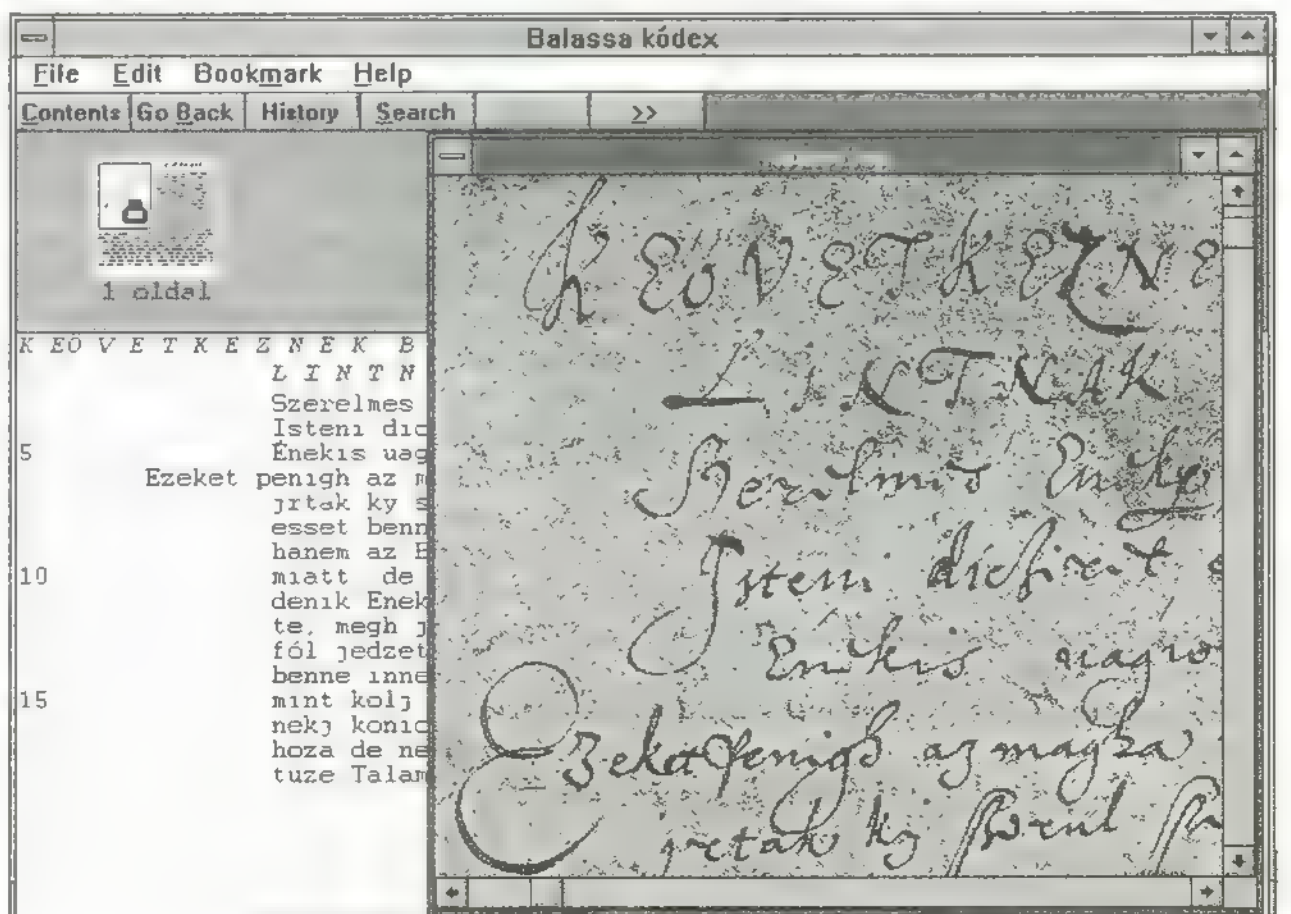 Balassa kódex
File Edit Bookmark Help
Contents Go Back History Search >>
1 oldal
K EÖ V E T K E Z N E K B
L I N T N
Szerelmes
Isteni dic
5 Énekis uag
Ezeket penigh az m
jrtak ky s
esset benn
hanem az B
10 miatt de
denik Enek
te, megh j
fól jedzet
benne inne
15 mint kolj
nekj konic
hoza de ne
tuze Talam
K EÖ V E T K E Z N E
L I N T N A K
Szerelmes Enekj
Isteni dichiret
Enekis uagio
Ezeket penigh az magha
jrtak kj